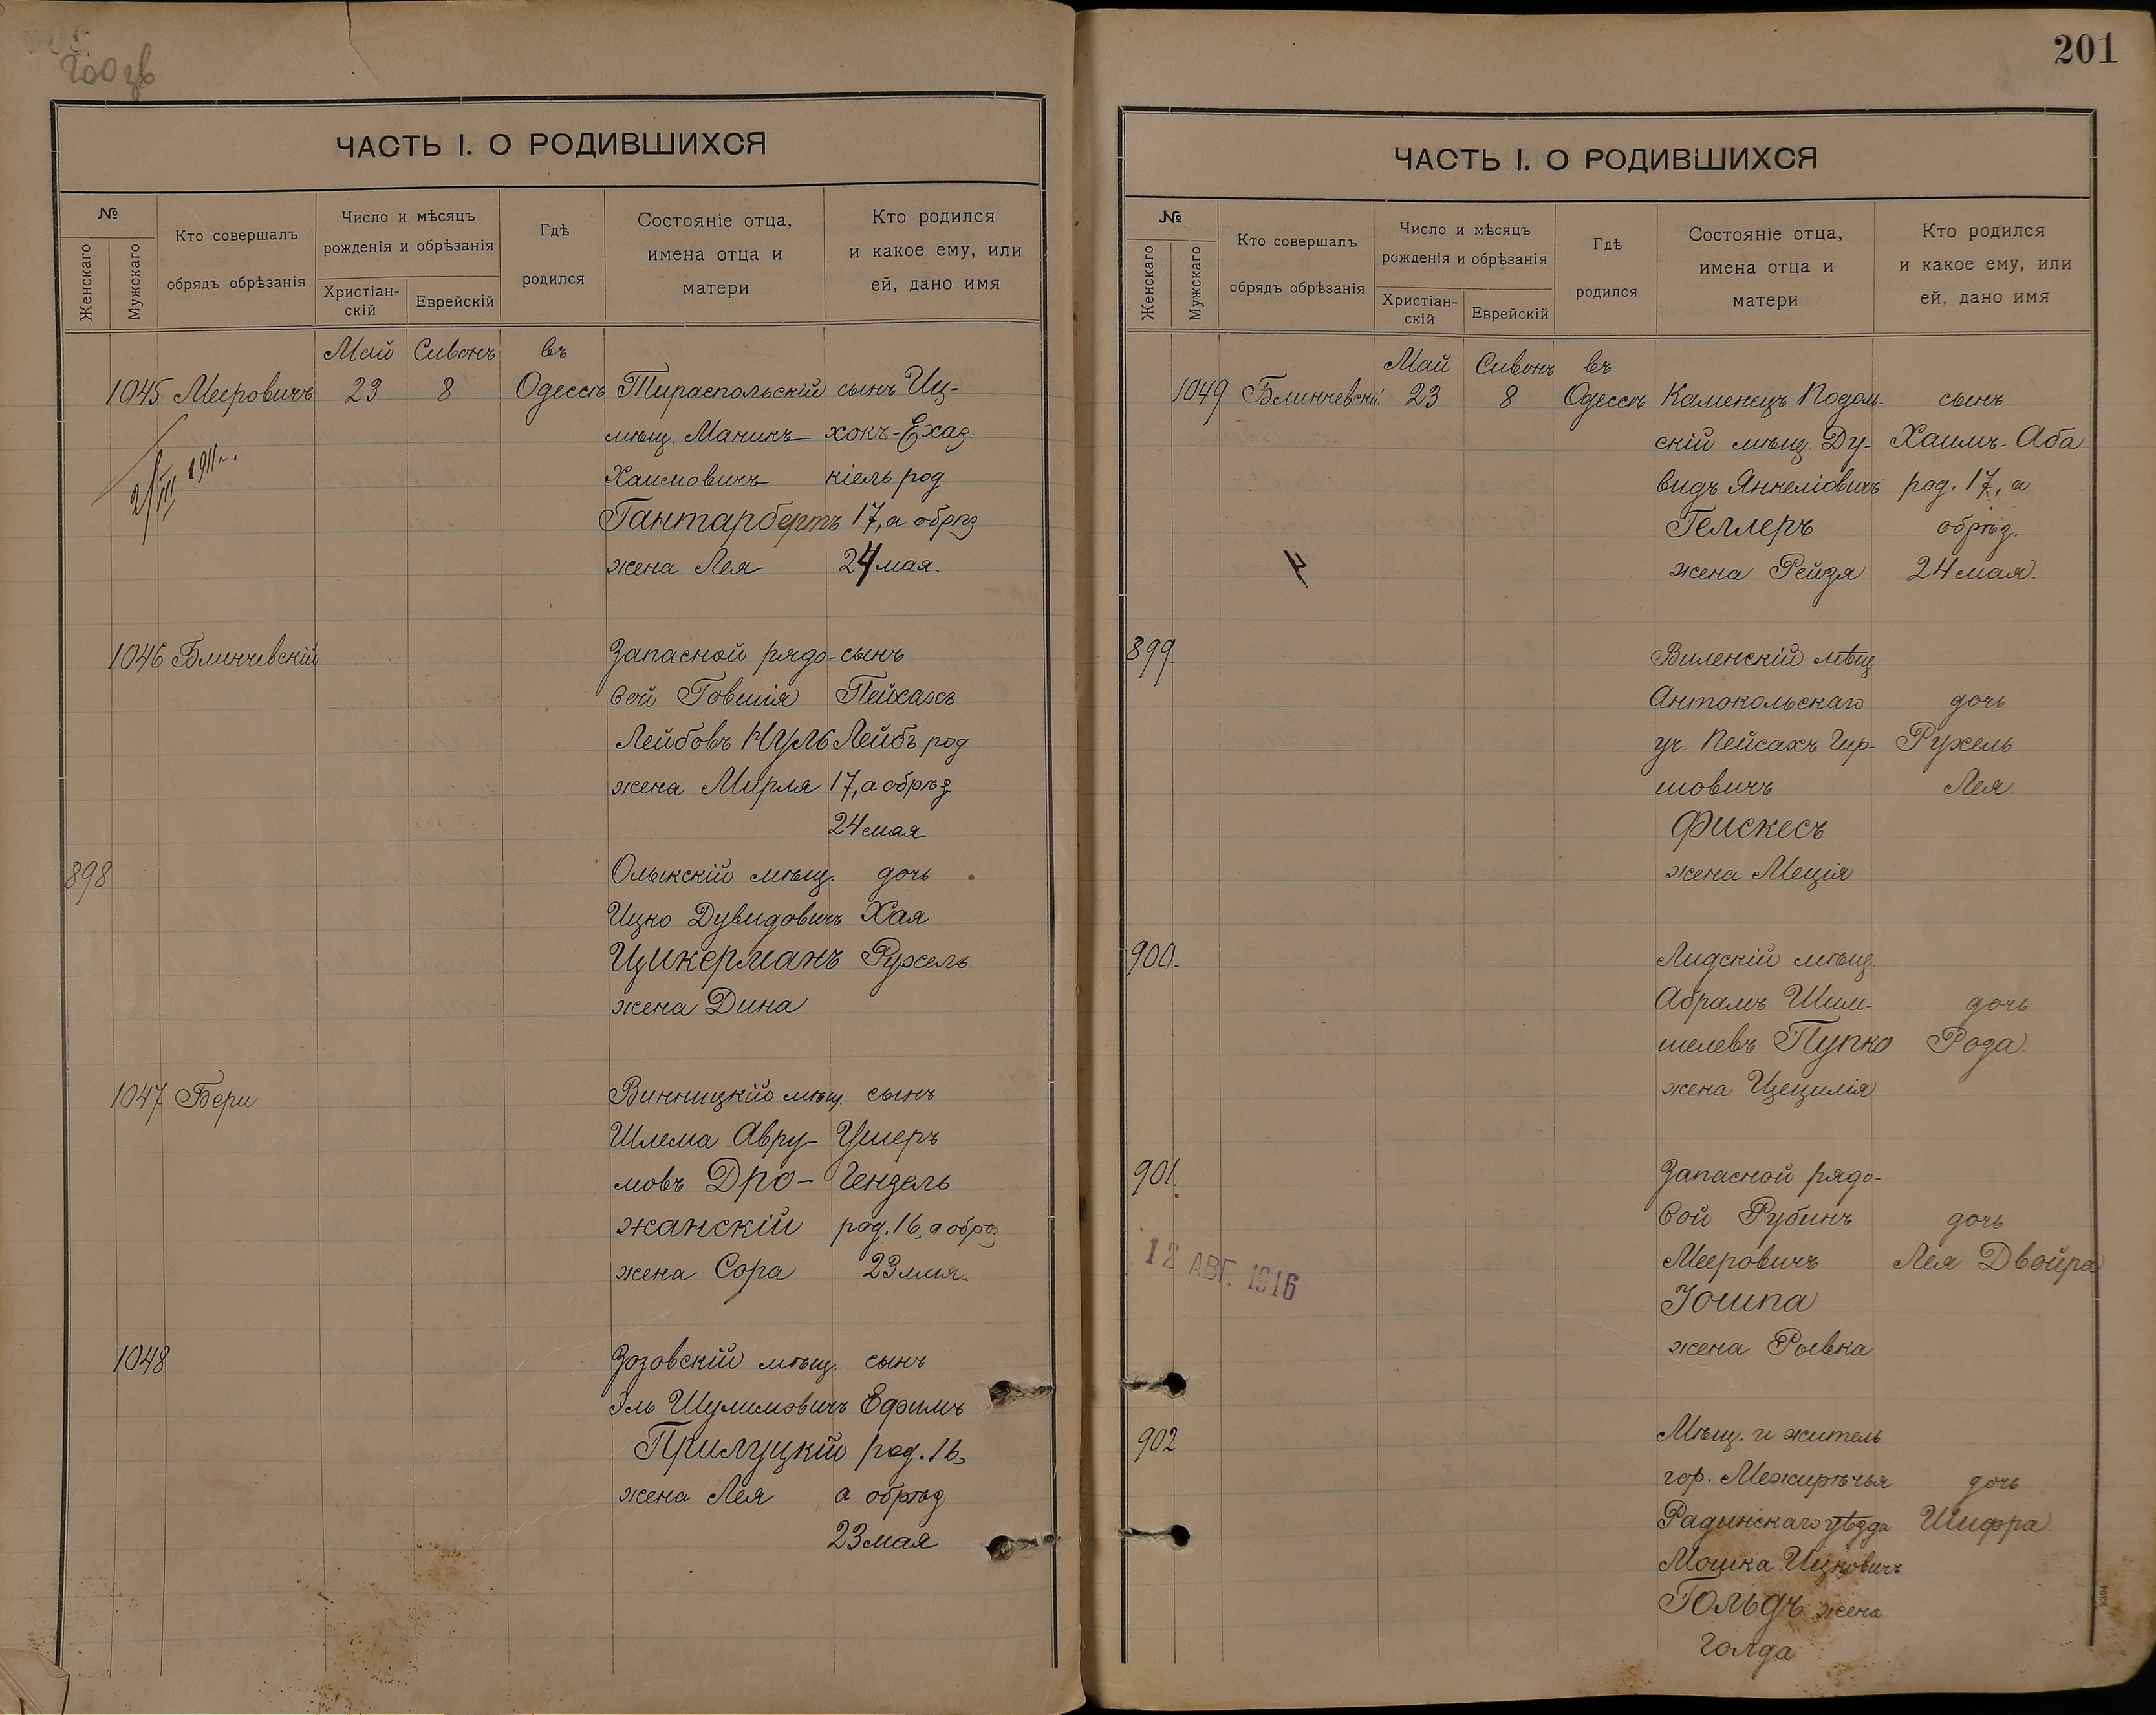 200 зв
ЧАСТЬ I. О РОДИВШИХСЯ
№
Женскаго
Мужскаго
Кто совершалъ
обрядъ обрѣзанія
Число и мѣсяцъ
рожденія и обрѣзанія
Христіан-
скій
Еврейскій
Гдѣ
родился
Состояніе отца,
имена отца и
матери
Кто родился
и какое ему, или
ей, дано имя
Май Сивонъ въ
1045 Мееровичъ 23 8 Одессѣ Тираспольскій сынъ Иц-
мѣщ. Маникъ хокъ-Ехаз
Хаимовичъ кіель род
Гантарбертъ 17, а обрѣз
жена Лея 24 мая.
2/III 1911 г.
1046 Блинчевскій Запасной рядо- сынъ
вой Говшія Пейсахъ
Лейбовъ Нуль Лейбъ род
жена Мирля 17, а обрѣз
24 мая
898 Олыкскій мѣщ. дочь
Ицко Дувидовичъ Хая
Цикерманъ Рухель
жена Дина
1047 Бери Винницкій мѣщ. сынъ
Шлема Авру- Ушеръ
мовъ Дро- Гендель
жанскій род. 16, а обрѣз
жена Сора 23 мая.
1048 Зозовскій мѣщ. сынъ
Эль Шулимовичъ Ефимъ
Прилуцкій род. 16,
жена Лея а обрѣз
23 мая
201
ЧАСТЬ I. О РОДИВШИХСЯ
№
Женскаго
Мужскаго
Кто совершалъ
обрядъ обрѣзанія
Число и мѣсяцъ
рожденія и обрѣзанія
Христіан-
скій
Еврейскій
Гдѣ
родился
Состояніе отца,
имена отца и
матери
Кто родился
и какое ему, или
ей, дано имя
Май Сивонъ въ
1049 Блинчевскій 23 8 Одессѣ Каменецъ Подол- сынъ
скій мѣщ. Ду- Хаимъ-Аба
видъ Янкеліовичъ род. 17, а
Геллеръ обрѣз.
жена Рейзя 24 мая.
899. Виленскій мѣщ
Антокольскаго дочь
уч. Пейсахъ Гир- Рухель
шовичъ Лея.
Фискесъ
жена Меція
900. Лидскій мѣщ.
Абрамъ Шим- дочь
шелевъ Пупко Роза.
жена Цецилія
901. Запасной рядо-
вой Рубинъ дочь
Мееровичъ Лея Двойра
Іошпа
жена Рывка
12 АВГ. 1916
902 Мѣщ. и житель
гор. Межирѣчья дочь
Радинскаго уѣзда Шифра.
Мошка Ицковичъ
Гольдъ жена
Голда